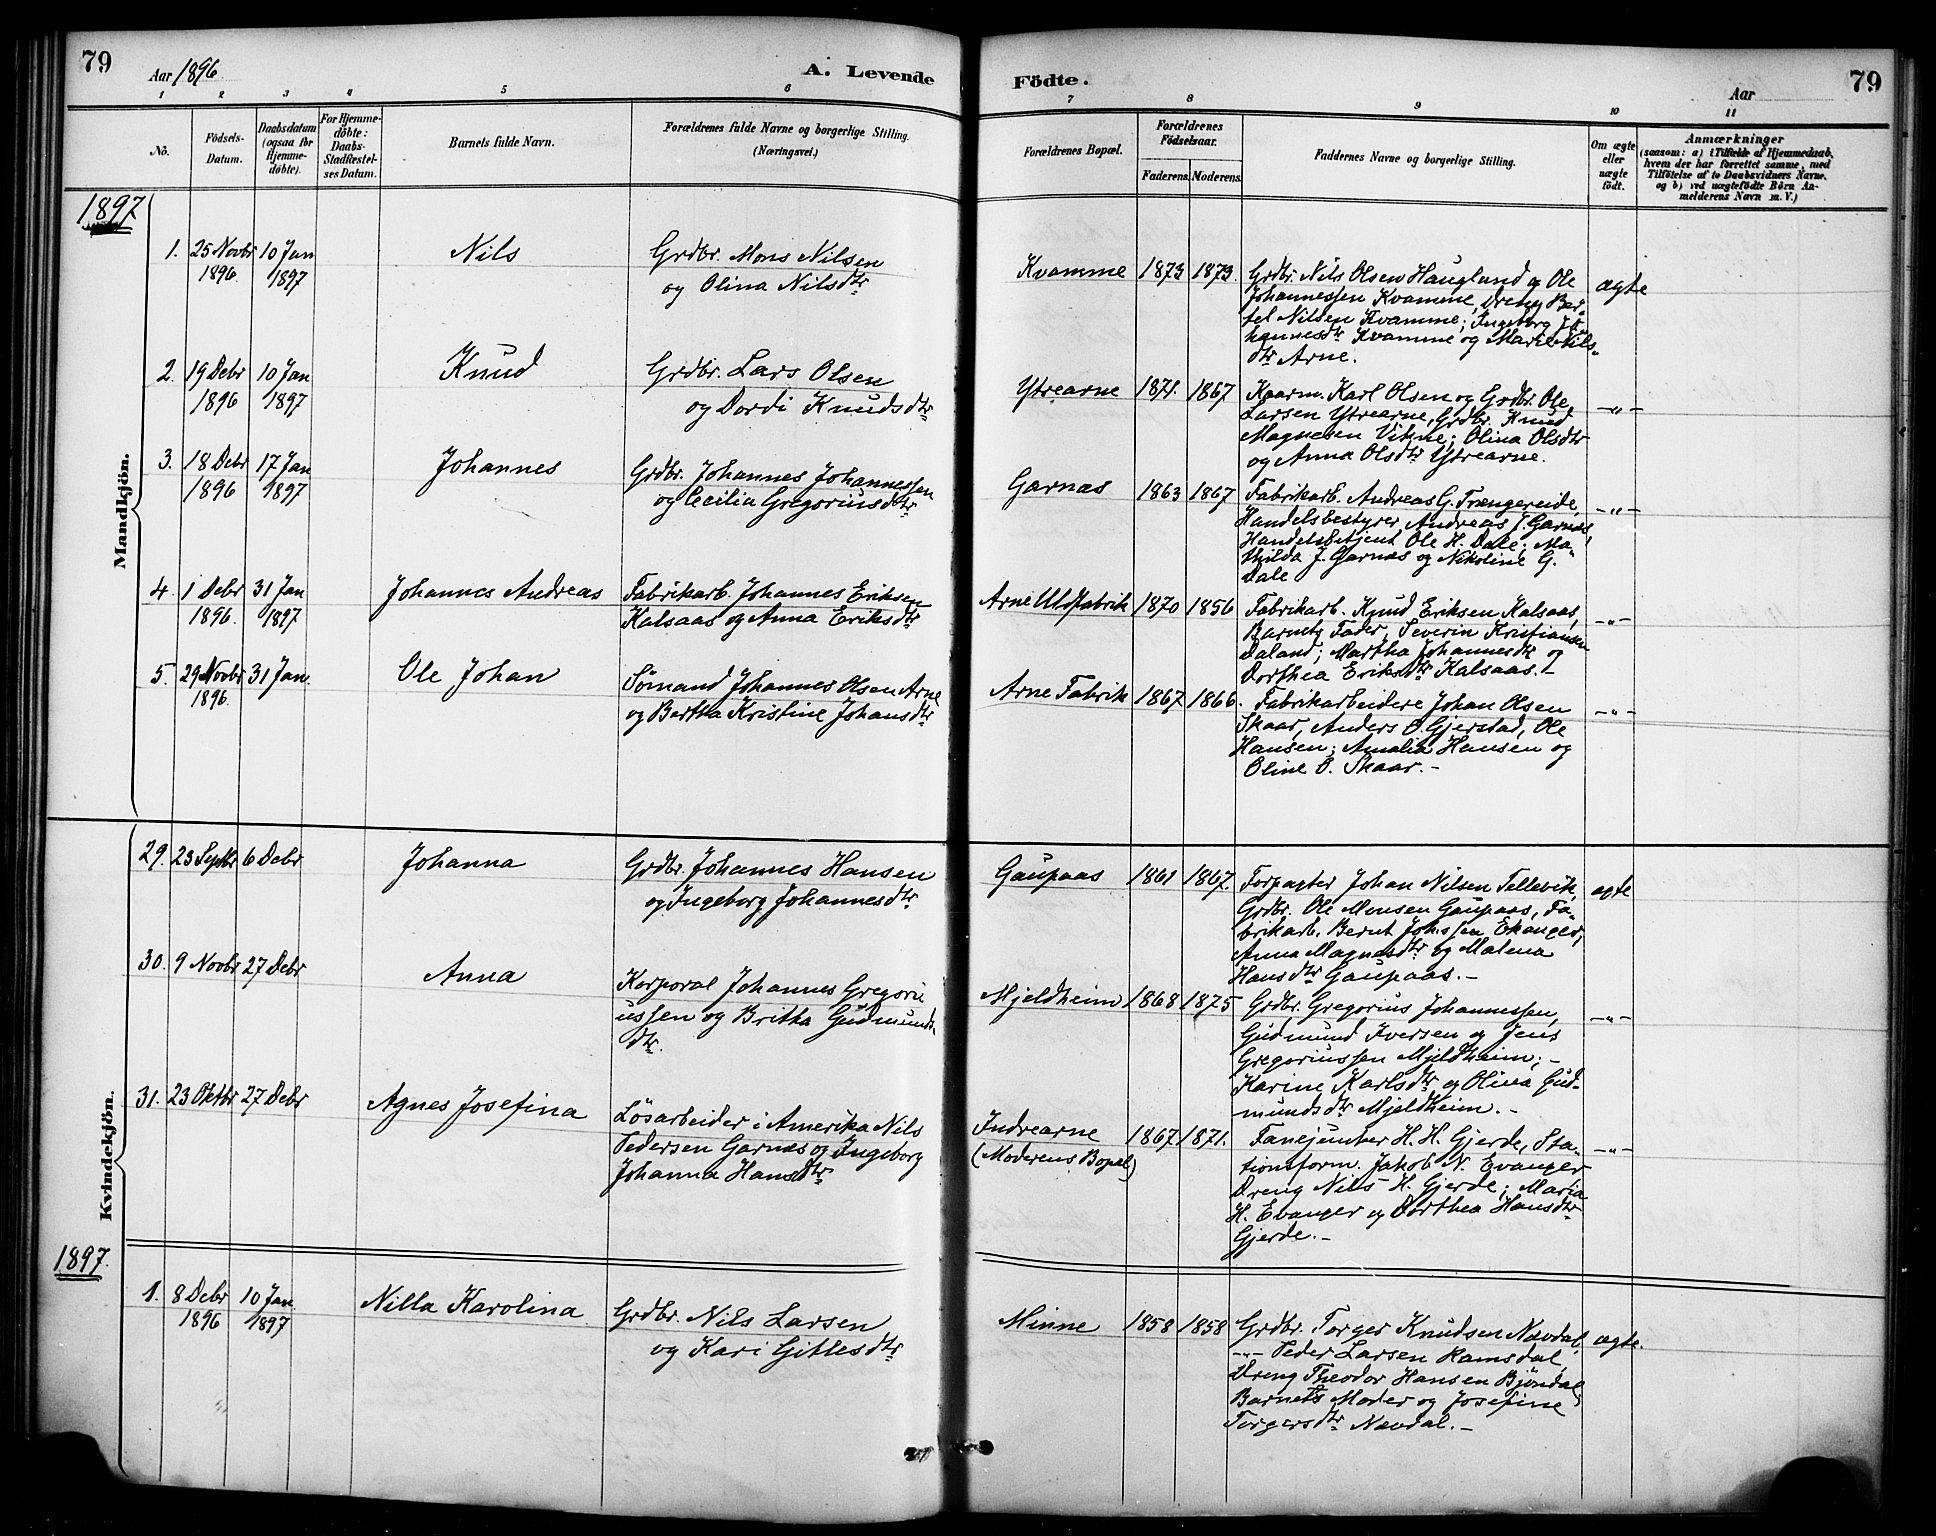 79
Aar 1896.
A. Levende
Födte.
Aar
79
1 2 3 4 5 6 7 8 9 10 11
No.
Födsels-
Datum.
Daabsdatum
(ogsaa for
Hjemme-
døbte).
For Hjemme-
døbte:
Daabs-
Stadfæstel-
ses Datum.
Barnets fulde Navn.
Forældrenes fulde Navne og borgerlige Stilling.
(Næringsvei.)
Forældrenes Bopæl.
Forældrenes
Födselsaar.
Faderens. Moderens.
Faddernes Navne og borgerlige Stilling.
Om ægte
eller
uægte
født.
Anmærkninger
(saasom: a) i Tilfælde af Hjemmedaab,
hvem der har forrettet samme, med
Tilföielse af to Daabsvidners Navne,
og b) ved uægtefödte Börn An-
melderens Navn m. V.)
1897
Mandkjön.
1. 25 Novbr 10 Jan Nils Grdbr. Mons Nilsen
1896 1897 og Olina Nilsdtr
Kvamme 1873 1873. Grdbr. Nils Olsen Haugland og Ole ægte
Johannessen Kvamme, Dreng Ber-
tel Nilsen Kvamme; Ingeborg Jo-
hannesdtr Kvamme og Mari Nils-
dtr Arne.
2. 19 Debr 10 Jan Knud Grdbr. Lars Olsen
1896 1897 og Dordi Knudsdtr
Ytrearne 1871. 1867 Kaarm. Karl Olsen og Grdbr. Ole -"-
Larsen Ytrearne, Grdbr. Knud
Magnesen Vikne; Olina Olsdtr
og Anna Olsdtr Ytrearne.
3. 18 Debr 17 Jan Johannes Grdbr. Johannes Johannessen
1896 1897 og Cecilia Gregoriusdtr
Garnæs 1863 1867 Fabrikarb. Andreas G. Trængereide, -"-
Handelsbestyrer Andreas J. Garnæs,
Handelsbetjent Ole H. Dale; Ma-
thilda J. Garnæs og Nikoline G.
Dale
4. 1 Debr 31 Jan Johannes Andreas Fabrikarb. Johannes Eriksen
1896. 1897 Kalsaas og Anna Eriksdtr
Arne Uldfabrik 1870 1856 Fabrikarb. Knud Eriksen Kalsaas, -"-
Barnets Fader, Severin Kristiansen
Daland; Martha Johannesdtr og
Dorthea Eriksdtr Kalsaas.-
5. 29 Novbr 31 Jan. Ole Johan Sömand Johannes Olsen Arne
1896. og Bertha Kristine Johansdtr
Arne Fabrik 1867 1866. Fabrikarbeidere Johan Olsen -"-
Skaar, Anders O. Gjerstad, Ole
Hansen; Amalia Hansen og
Oline O. Skaar.-
Kvindekjön.
29. 23 Septbr 6 Debr Johanna Grdbr. Johannes Hansen
og Ingeborg Johannesdtr
Gaupaas 1861 1867. Forpagter Johan Nilsen Tellevik, ægte
Grdbr. Ole Monsen Gaupaas, Fa-
brikarb. Bernt Johnssen Ekanger,
Anna Magnesdtr og Malena
Hansdtr Gaupaas.-
30. 9 Novbr 27 Debr Anna Korporal Johannes Gregori
ussen og Britha Gudmunds-
dtr.
Mjeldheim 1868 1875 Grdbr. Gregorius Johannessen, -"-
Gudmund Iversen og Jens
Gregoriussen Mjeldheim;-
Karine Karlsdtr og Olina Gud-
mundsdtr Mjeldheim.-
31. 23 Oktbr 27 Debr Agnes Josefina Lösarbeider i Amerika Nils
Pedersen Garnæs og Ingeborg
Johanna Hansdtr
Indrearne 1867 1871. Fanejunker H. H. Gjerde, Sta- -"-
(Moderens Bopæl) tionsform. Jakob N. Evanger
Dreng Nils H. Gjerde; Maria
H. Evanger og Dorthea Hansdtr
Gjerde.-
1897.
1. 8 Debr 10 Jan. Nilla Karolina Grdbr. Nils Larsen
1896 1897 og Kari Gitlesdtr
Minne 1858 1858 Grdbr. Torger Knudsen Nævdal, ægte.
-"- Peder Larsen Ramsdal,
Dreng Theodor Hansen Bjöndal;
Barnets Moder og Josefine
Torgersdtr Nævdal.-